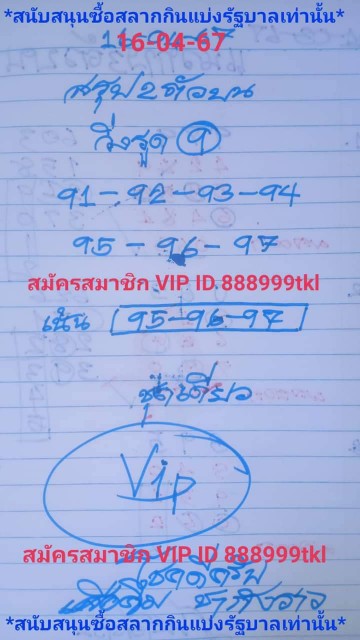 *สนับสนุนซื้อสลากกินแบ่งรัฐบาลเท่านั้น*
16-04-67
สรุป2ตัวบน
วิ่งรูด 9
91-92-93-94
95-96-97
สมัครสมาชิก VIP ID 888999tkl
เน้น 95-96-97
ชุดเดียว
Vip
สมัครสมาชิก VIP ID 888999tkl
โชคดีครับ
*สนับสนุนซื้อสลากกินแบ่งรัฐบาลเท่านั้น*